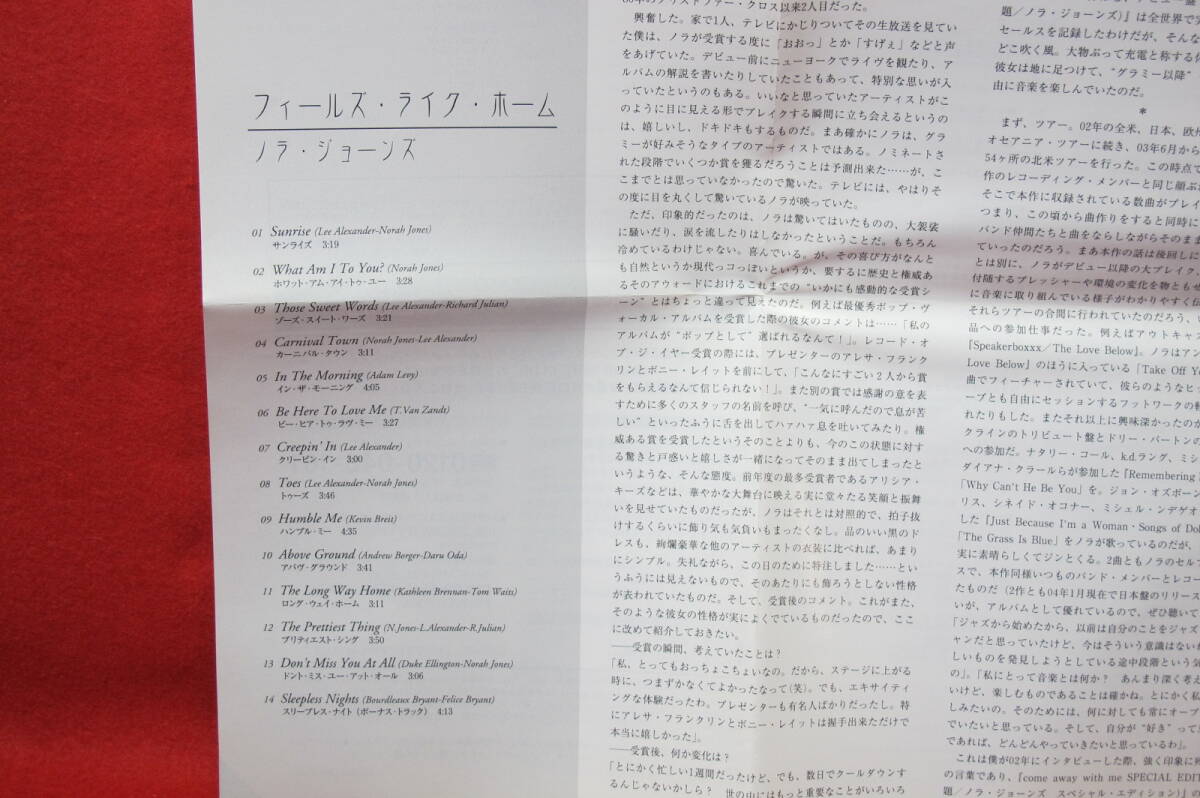 フィールズ・ライク・ホーム
ノラ・ジョーンズ
01 Sunrise (Lee Alexander-Norah Jones)
サンライズ 3:19
02 What Am I To You? (Norah Jones)
ホワット・アム・アイ・トゥ・ユー 3:28
03 Those Sweet Words (Lee Alexander-Richard Julian)
ゾーズ・スイート・ワーズ 3:21
04 Carnival Town (Norah Jones-Lee Alexander)
カーニバル・タウン 3:11
05 In The Morning (Adam Levy)
イン・ザ・モーニング 4:05
06 Be Here To Love Me (T.Van Zandt)
ビー・ヒア・トゥ・ラヴ・ミー 3:27
07 Creepin' In (Lee Alexander)
クリーピン・イン 3:00
08 Toes (Lee Alexander-Norah Jones)
トゥーズ 3:46
09 Humble Me (Kevin Breit)
ハンブル・ミー 4:35
10 Above Ground (Andrew Borger-Daru Oda)
アバヴ・グラウンド 3:41
11 The Long Way Home (Kathleen Brennan-Tom Waits)
ロング・ウェイ・ホーム 3:11
12 The Prettiest Thing (N.Jones-L.Alexander-R.Julian)
プリティエスト・シング 3:50
13 Don't Miss You At All (Duke Ellington-Norah Jones)
ドント・ミス・ユー・アット・オール 3:06
14 Sleepless Nights (Bourdleaux Bryant-Felice Bryant)
スリープレス・ナイト (ボーナス・トラック) 4:13
のクリストファー・クロス以来2人目だった。
興奮した。家で1人、テレビにかじりついてその生放送を見てい
た僕は、ノラが受賞する度に「おおっ」とか「すげぇ」などと声
をあげていた。デビュー前にニューヨークでライヴを観たり、ア
ルバムの解説を書いたりしていたこともあって、特別な思いが入
っていたというのもある。いいなと思っていたアーティストがこ
のように目に見える形でブレイクする瞬間に立ち会えるというの
は、嬉しいし、ドキドキもするものだ。まあ確かにノラは、グラ
ミーが好みそうなタイプのアーティストではある。ノミネートさ
れた段階でいくつか賞を獲るだろうことは予測出来た……が、こ
こまでとは思っていなかったので驚いた。テレビには、やはりそ
の度に目を丸くして驚いているノラが映っていた。
ただ、印象的だったのは、ノラは驚いてはいたものの、大袈裟
に騒いだり、涙を流したりはしなかったということだ。もちろん
冷めているわけじゃない。喜んでいる。が、その喜び方がなんと
も自然というか現代っコっぽいというか、要するに歴史と権威あ
るそのアウォードにおけるこれまでの“いかにも感動的な受賞シ
ーン”とはちょっと違って見えたのだ。例えば最優秀ポップ・ヴ
ォーカル・アルバムを受賞した際の彼女のコメントは……「私の
アルバムが“ポップとして”選ばれるなんて！」。レコード・オ
ブ・ジ・イヤー受賞の際には、プレゼンターのアレサ・フランク
リンとボニー・レイットを前にして、「こんなにすごい2人から賞
をもらえるなんて信じられない！」。また別の賞では感謝の意を表
すために多くのスタッフの名前を呼び、“一気に呼んだので息が苦
しい”といったふうに舌を出してハァハァ息を吐いてみたり。権
威ある賞を受賞したというそのことよりも、今のこの状態に対す
る驚きと戸惑いと嬉しさが一緒になってそのまま出てしまったと
いうような、そんな態度。前年度の最多受賞者であるアリシア・
キーズなどは、華やかな大舞台に映える実に堂々たる笑顔と振舞
いを見せていたものだったが、ノラはそれとは対照的で、拍子抜
けするくらいに飾り気も気負いもまったくなし。品のいい黒のド
レスも、絢爛豪華な他のアーティストの衣装に比べれば、あまり
にシンプル。失礼ながら、この日のために特注しました……とい
うふうには見えないもので、そのあたりにも飾ろうとしない性格
が表われていたものだ。そして、受賞後のコメント。これがまた、
そのような彼女の性格が実によくでているものだったので、ここ
に改めて紹介しておきたい。
──受賞の瞬間、考えていたことは？
「私、とってもおっちょこちょいなの。だから、ステージに上がる
時に、つまずかなくてよかったなって(笑)。でも、エキサイティ
ングな体験だったわ。プレゼンターも有名人ばかりだったし。特
にアレサ・フランクリンとボニー・レイットは握手出来ただけで
本当に嬉しかった」。
──受賞後、何か変化は？
「とにかく忙しい1週間だったけど、でも、数日でクールダウンす
るんじゃないかしら？ 世の中にはもっと重要なことがいろいろ
題／ノラ・ジョーンズ)』は全世界で
セールスを記録したわけだが、そんな
どこ吹く風。大物ぶって充電と称する
彼女は地に足つけて、“グラミー以降”
由に音楽を楽しんでいたのだ。
*
まず、ツアー。02年の全米、日本、欧州
オセアニア・ツアーに続き、03年6月から
54ヶ所の北米ツアーを行った。この時点で
作のレコーディング・メンバーと同じ顔ぶ
そこで本作に収録されている数曲がプレイ
つまり、この頃から曲作りをすると同時に
バンド仲間たちと曲をならしながらそのまま
ていったのだろう。まあ本作の話は後回しに
とは別に、ノラがデビュー以降の大ブレイク
付随するプレッシャーや環境の変化を物ともせ
に音楽に取り組んでいる様子がわかりやすく
それらツアーの合間に行われていたのだろう、
品への参加仕事だった。例えばアウトキャス
『Speakerboxxx／The Love Below』。ノラはアン
Love Below』のほうに入っている「Take Off Yo
曲でフィーチャーされていて、彼らのようなヒッ
ープとも自由にセッションするフットワークの軽
れたりもした。またそれ以上に興味深かったのが
クラインのトリビュート盤とドリー・パートンの
への参加だ。ナタリー・コール、k.d.ラング、ミシ
ダイアナ・クラールらが参加した『Remembering
「Why Can't He Be You」を。ジョン・オズボーン
リス、シネイド・オコナー、ミシェル・ンデゲオ
した『Just Because I'm a Woman - Songs of Dol
「The Grass Is Blue」をノラが歌っているのだが、
実に素晴らしくてジンとくる。2曲ともノラのセルフ
スで、本作同様いつものバンド・メンバーとレコー
たものだ (2作とも04年1月現在で日本盤のリリース
いが、アルバムとして優れているので、ぜひ聴いて
「ジャズから始めたから、以前は自分のことをジャズ
ャンだと思っていたけど、今はそういう意識はない
しいものを発見しようとしている途中段階という気
の」。「私にとって音楽とは何か？ あんまり深く考え
いけど、楽しむものであることは確かね。とにかく
しみたいの。そのためには、何に対しても常にオープ
でいたいと思っている。そして、自分が“好き”って
であれば、どんどんやっていきたいと思っているわ」。
これは僕が02年にインタビューした際、強く印象に
の言葉であり、『come away with me SPECIAL EDIT
題／ノラ・ジョーンズ スペシャル・エディション)』の